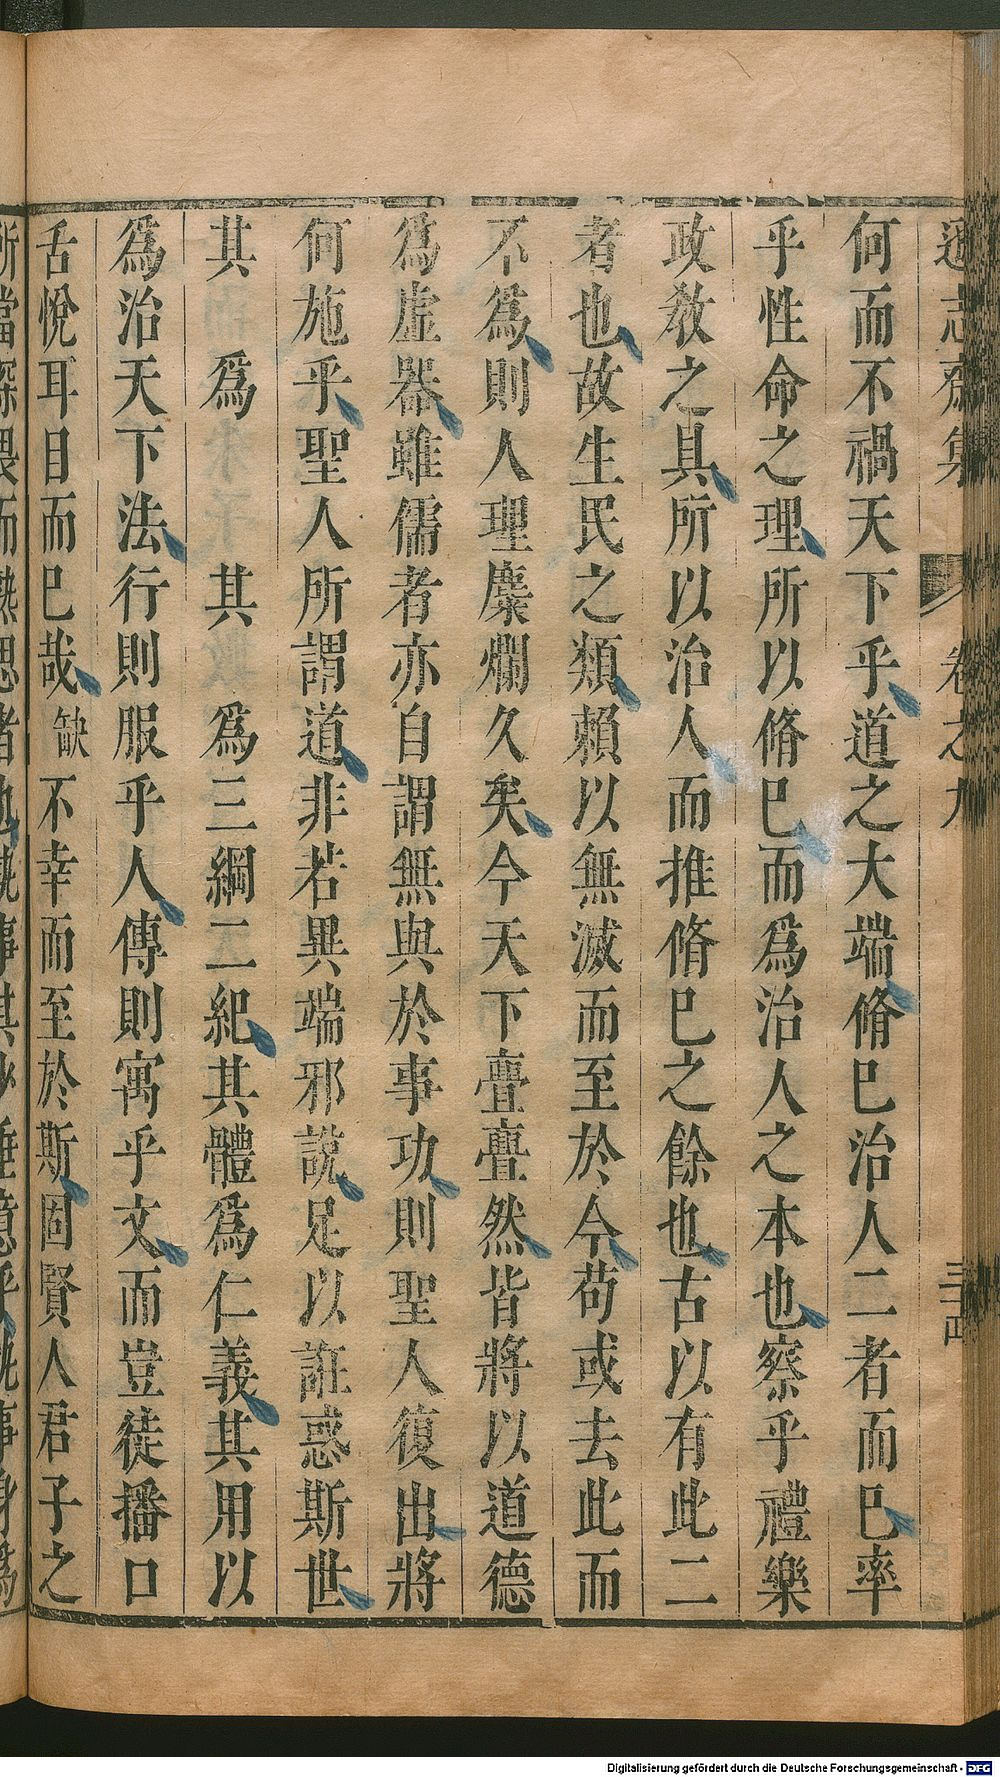 遜志齋集 卷之九
何而不禍天下乎道之大端脩巳治人二者而巳率
乎性命之理所以脩巳而爲治人之本也察乎禮樂
政敎之具所以治人而推脩巳之餘也古以有此二
者也故生民之類賴以無滅而至於今苟或去此而
不爲則人理麋爛久矣今天下亹亹然皆將以道德
爲虚器雖儒者亦自謂無與於事功則聖人復出將
何施乎聖人所謂道非若異端邪說足以誑惑斯世
其 爲 其 爲三綱二紀其體爲仁義其用以
爲治天下法行則服乎人傳則寓乎文而豈徒播口
舌悅耳目而巳哉缺不幸而至於斯固賢人君子之
Digitalisierung gefördert durch die Deutsche Forschungsgemeinschaft - DFG